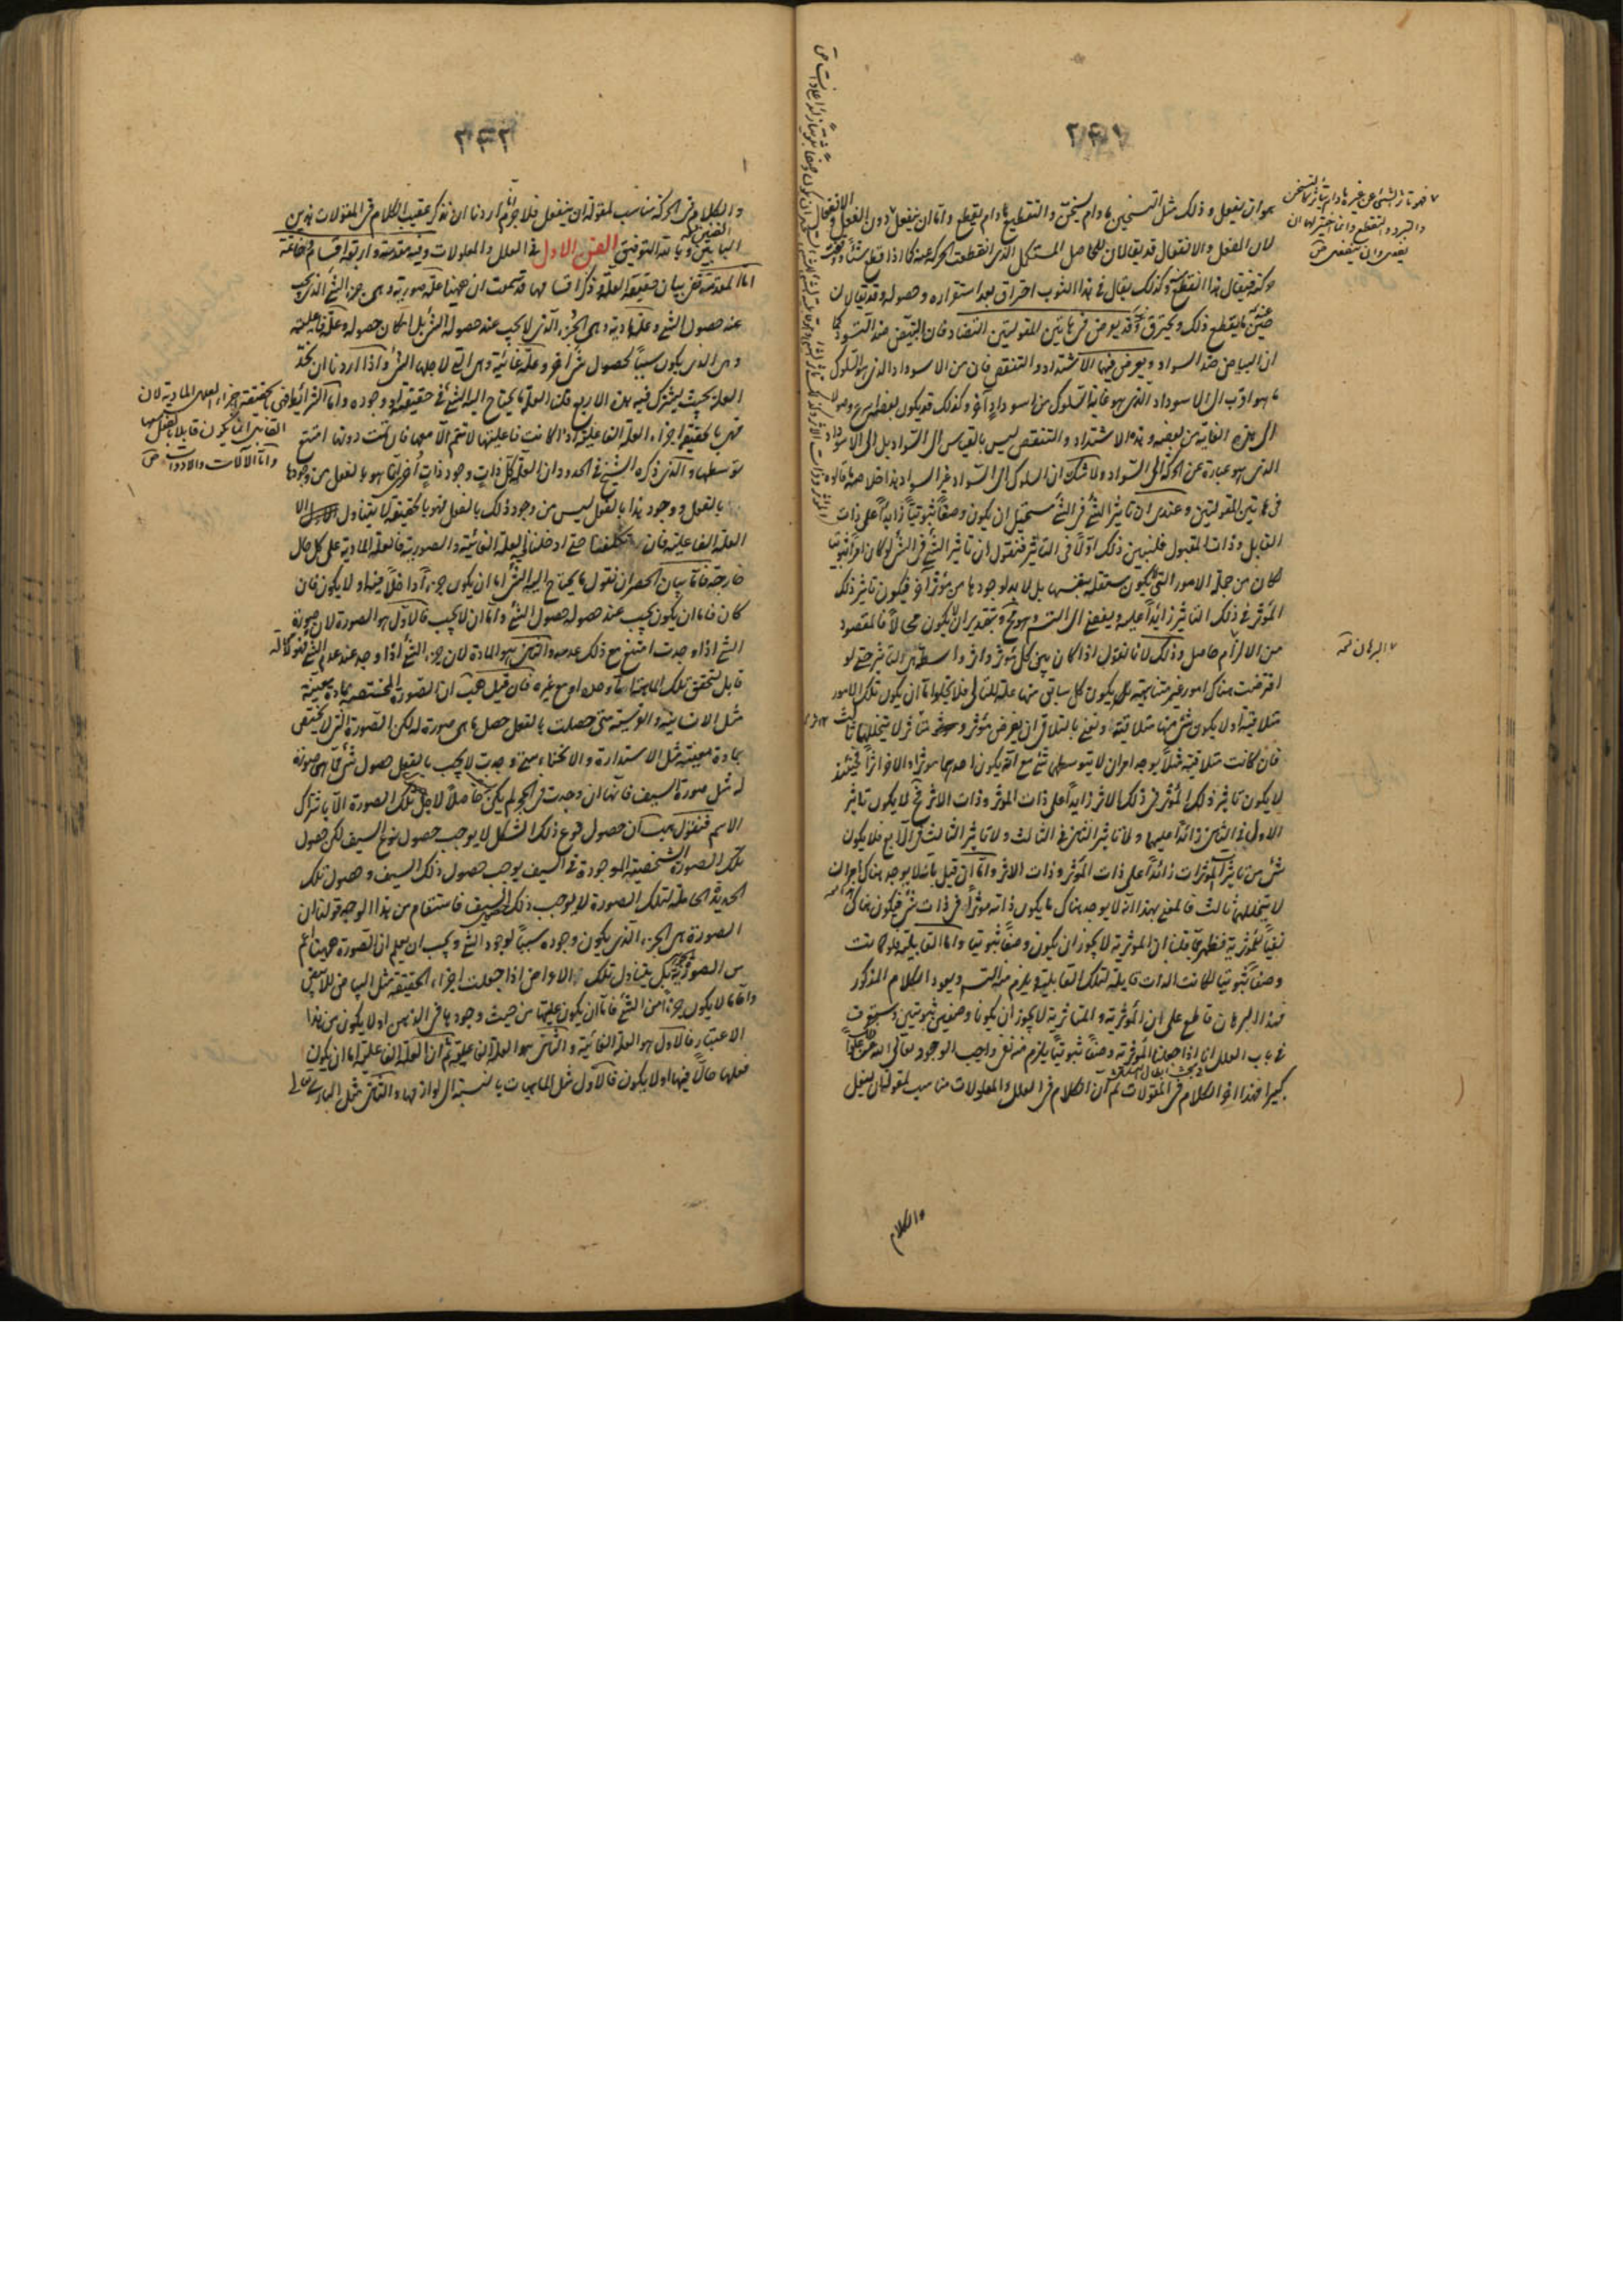 ٢٦١
هو ان يفعل وذلك مثل التسخين ما دام يسخن والتقطيع ما دام يقطع واما ان ينفعل دون الفعل و الانفعال
لان الفعل والانفعال قد يقالان للحاصل المستكمل الذي انقطعت الحركة عنه كما اذا قطع شيئا
حركته فيقال هذا القطع منه وكذلك يقال في هذا الثوب احتراق بعد استقراره وحصوله وقد يقالان
حين ما يقطع ذلك ويحترق وقد يعرض في هاتين المقولتين التضاد فان التبيض ضد التسود كما
ان البياض ضد السواد ويعرض فيهما الاشتداد والتنقص فان من الاسوداد الذي هو السلوك
ما هو اقرب الى الاسوداد الذي هو غاية السلوك من اسوداد آخر وكذلك قد يكون بعضه اسرع وصولا
الى هذه الغاية من بعضه وهذا الاشتداد والتنقص ليس بالقياس الى السواد بل الى الاسوداد
الذي هو عبارة عن الحركة الى السواد ولا شك ان السلوك الى السواد غير السواد هذا خلاصة ما قالوه
في هاتين المقولتين وعندي ان تاثير الشئ في الشئ مستحيل ان يكون وصفا ثبوتيا زايدا على ذات
القابل وذات المقبول فلنبين ذلك اولا في التاثير فنقول ان تاثير الشئ في الشئ لو كان امرا ثبوتيا
لكان من جملة الامور التي لا يكون مستقلة بنفسها بل لا بد لوجودها من مؤثر آخر فيكون تاثير ذلك
المؤثر في ذلك التاثير زائدا عليه ويفضي الى التسلسل وهو مح وبتقدير ان لا يكون محالا فالمقصود
من الالزام حاصل وذلك لانا نقول اذا كان بين كل مؤثر واثر واسطة هي التاثير حتى لو
افترضت هناك امور غير متناهية بل يكون كل سابق منها علة للتالي فلا يخلوا اما ان يكون تلك الامور
متلاقية او لا يكون شئ منها متلاقية ونعني بالتلاقي ان يفرض مؤثر ومتاثر لا يتخللهما ثالث
فان كانت متلاقية فبلا يوجد امران لا يتوسطهما شئ مع انه يكون احدهما مؤثرا والاخر اثرا فحينئذ
لا يكون تاثير ذلك المؤثر في ذلك الاثر زايدا على ذات المؤثر وذات الاثر فح لا يكون تاثير
الاول في الثاني زائدا عليهما ولا تاثير الثاني في الثالث ولا تاثير الثالث في الرابع فلا يكون
شئ من تاثير المؤثرات زائدا على ذات المؤثر وذات الاثر واما ان قيل بانه لا يوجد هناك امران
لا يتخللهما ثالث فالمعنى بهذا انه لا يوجد هناك ما يكون ذاته مؤثرا في ذات شئ فيكون هناك
نفيا للمؤثرية فظهر بما قلنا ان المؤثرية لا يجوز ان يكون وصفا ثبوتيا واما القابلية فلو كانت
وصفا ثبوتيا لكانت الذات قابلة لتلك القابلية ويلزم منه التسلسل ويعود الكلام المذكور
فهذا البرهان قاطع على ان المؤثرية والمتاثرية لا يجوز ان يكونا وصفين ثبوتيين وستعرف
في باب العلل انا اذا جعلنا المؤثرية وصفا ثبوتيا يلزم منه نفي واجب الوجود تعالى الله عن ذلك علوا
كبيرا فهذا اخر الكلام في المقولات ثم ان الكلام في العلل والمعلولات مناسب لمقولة ان يفعل
والكلام
البرهان ثمه
٢٦٢
والكلام في الحركة مناسب لمقولة ان ينفعل فلا جرم اردنا ان نذكر عقيب الكلام في المقولات هذين
البابين وبالله التوفيق الفن الاول في العلل والمعلولات وفيه مقدمة واربعة اقسام وخاتمة
اما المقدمة ففي بيان حقيقة العلة وذكر اقسامها قد سمعت ان ههنا علة صورية وهي جزء الشئ الذي يجب
عند حصوله الشئ وعلة مادية وهي الجزء الذي لا يجب عند حصوله الشئ بل امكان حصوله وعلة فاعلية
وهي الذي يكون سببا لحصول شئ آخر وعلة غائية وهي التي لاجلها الشئ واذا اردنا ان نحد
العلة بحيث يشترك فيه هذه الاربع قلنا العلة ما يحتاج اليه الشئ في حقيقته او وجوده واما الشرائط
فهي بالحقيقة اجزاء العلة الفاعلية اذا كانت فاعليتها لا تتم الا معها فان تمت دونها امتنع
توسطها والذي ذكره الشيخ في الحدود ان العلة كل ذات وجود ذات اخرى انما هو بالفعل من وجودها
بالفعل ووجود هذا بالفعل ليس من وجود ذلك بالفعل فهو بالحقيقة لا يتناول الا
العلة الفاعلية فان تكلفنا حتى ادخلنا فيه العلة الغائية والصورية فالعلة المادية على كل حال
خارجة فاما بيان الحصر ان نقول ما يحتاج اليه الشئ اما ان يكون جزءا داخلا فيه او لا يكون فان
كان فاما ان يكون يجب عند حصوله حصول الشئ واما ان لا يجب فالاول هو الصورة لان صورة
الشئ اذا وجدت امتنع مع ذلك عدمه والثاني هو المادة لان جزء الشئ اذا وجد عند عدم الشئ
قابل لتحقق تلك الماهية اما وحده او مع غيره فان قيل هب ان الصورة المختصة بمادة معينة
مثل الانسانية والفرسية متى حصلت بالفعل حصل ما هي صورة له لكن الصورة التي لا يختص
بمادة معينة مثل الاستدارة والانحناء متى وجدت لا يجب بالفعل حصول شئ ما هي صورة
له مثل صورة السيف فانها ان وجدت في الحجر لم يكن حاصلا لاجل تلك الصورة الا باشتراك
الاسم فنقول يجب ان حصول نوع ذلك الشكل لا يوجب حصول نوع السيف لكن حصول
تلك الصورة الشخصية الموجودة في السيف يوجب حصول ذلك السيف وحصول تلك
الحديد الحاملة لتلك الصورة لا يوجب ذلك السيف فاستقام من هذا الوجه قولنا ان
الصورة هي الجزء الذي يكون وجوده سببا لوجود الشئ ويجب ان يعلم ان الصورة ههنا اعم
من الصورة الجوهرية بل يتناول تلك والاعراض اذا جعلت اجزاء الحقيقة مثل البياض للابيض
واما ما لا يكون جزءا من الشئ فاما ان يكون عليتها من حيث وجودها في الذهن او لا يكون من هذا
الاعتبار فالاول هو العلة الغائية والثاني هو العلة الفاعلية ثم ان العلة الفاعلية اما ان يكون
فعلها حالا فيها او لا يكون فالاول مثل الماهيات بالنسبة الى لوازمها والثاني مثل الباري تعالى